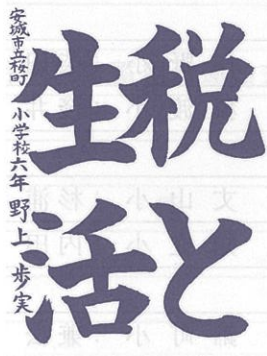 税と
生活
安城市立桜町小学校六年 野上 歩実